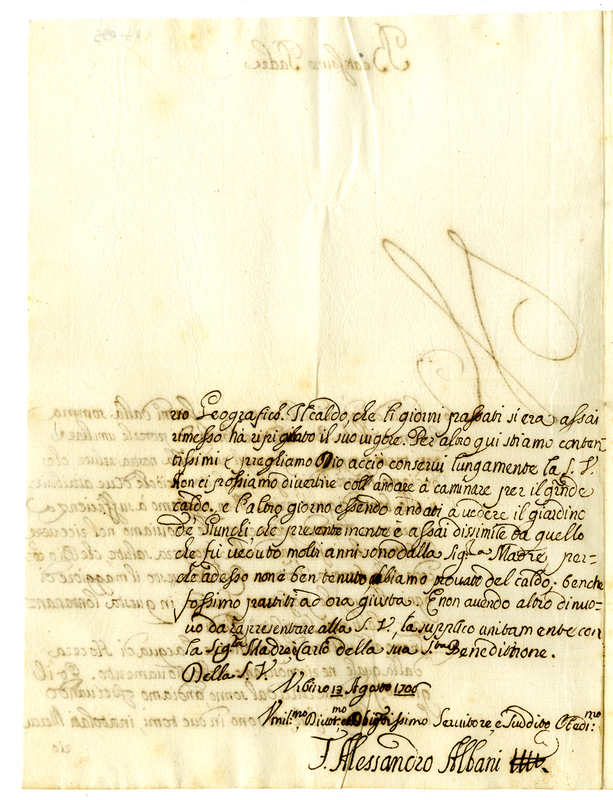 rio Geografico. Il caldo, che li giorni passati si era assai
rimesso, hà ripigliato il suo vigore. Per altro qui stiamo conten-
tissimi e preghiamo Dio acciò conservi lungamente la S. V.
Non ci possiamo divertire coll'andare à caminare per il grande
caldo, e l'altro giorno essendo andati à vedere il giardino
de' Giunchi, che presentemente è assai dissimile da quello
che fù veduto molti anni sono dalla Sig.ra Madre, per-
che adesso non è ben tenuto, abbiamo provato del caldo; benche
fossimo partiti ad ora giusta. E non avendo altro di nuo-
vo da rappresentare alla S. V., la supplico unitamente con
la Sig.ra Madre, e Carlo della sua S.ta Benedittione.
Della S. V.
Urbino 13 Agosto 1706
Umil.mo Divot.mo Oblig.issimo Servitore, e Suddito Obedi.mo
F. Alessandro Albani